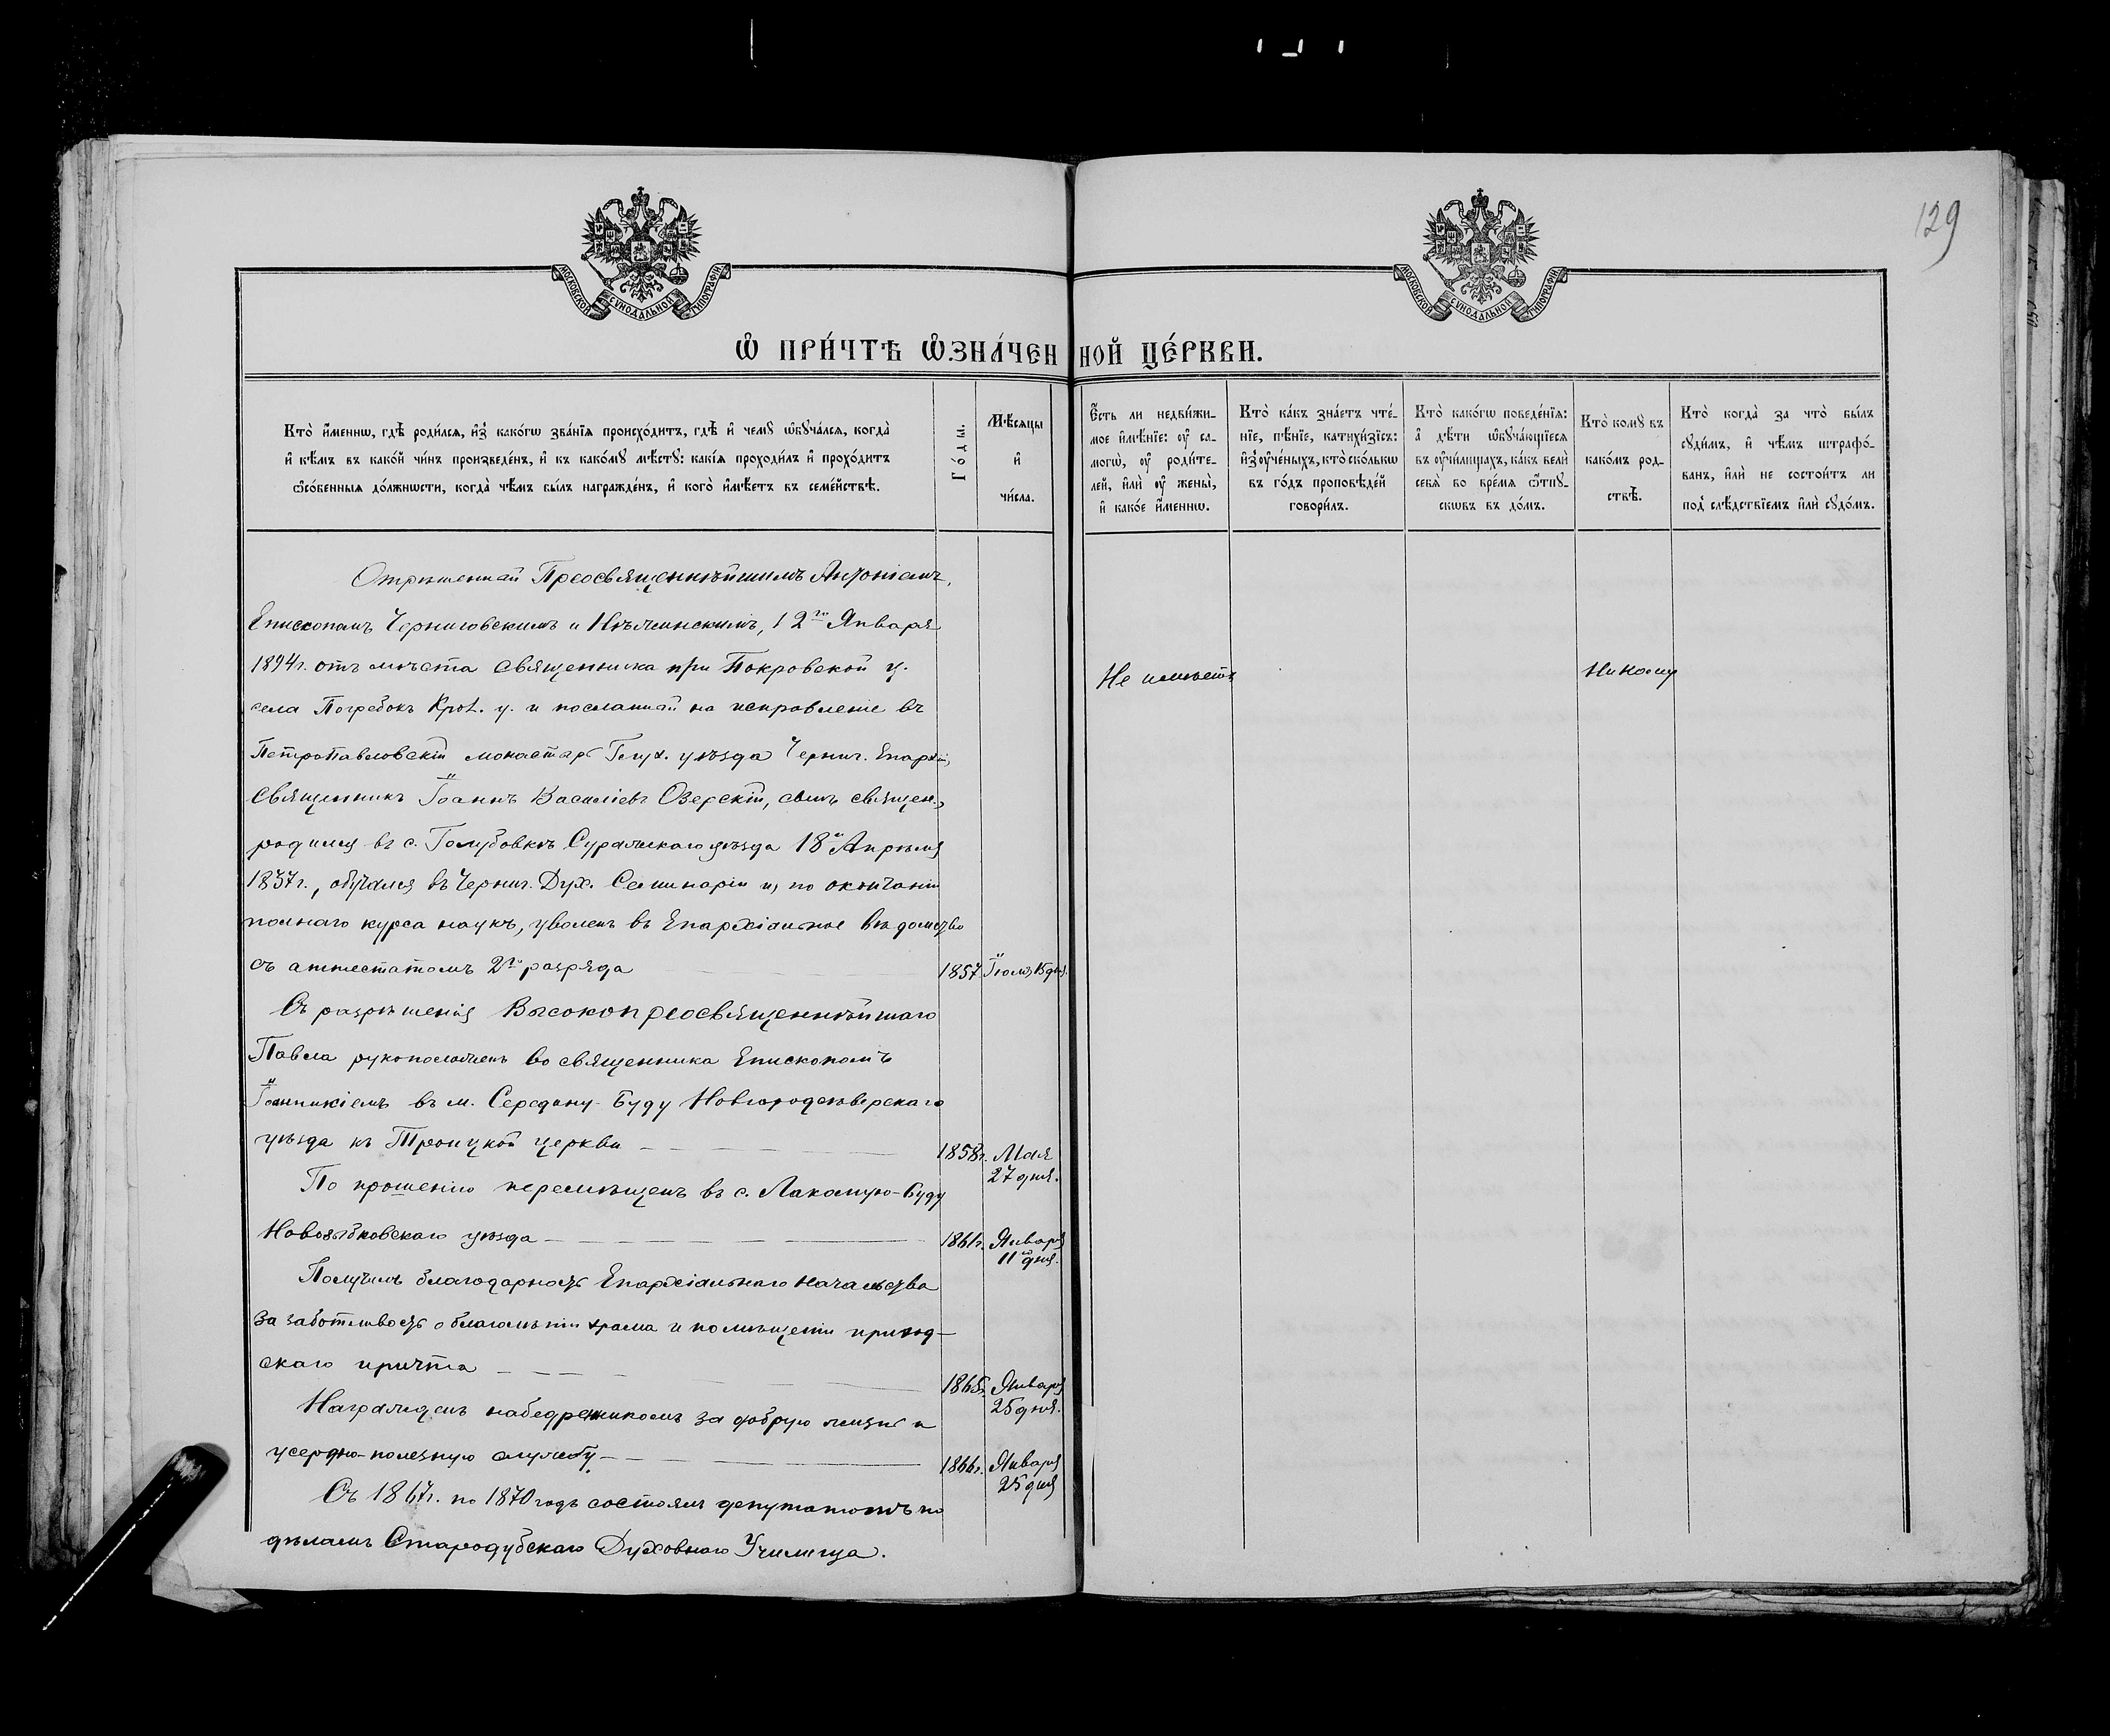 129
МОСКОВСКОЙ СУНОДАЛЬНОЙ ТИПОГРАФІИ
МОСКОВСКОЙ СУНОДАЛЬНОЙ ТИПОГРАФІИ
Ѡ ПРИ́ЧТѢ ѠЗНА́ЧЕННОЙ ЦЕ́РКВИ.
Кто̀ и҆́меннѡ, гдѣ̀ роди́лсѧ, и҆з̾ како́гѡ зва́нїѧ происхо́дитъ, гдѣ̀ и҆ чемꙋ̀ ѡ҆бꙋча́лсѧ, когда̀
и҆ кѣ́мъ въ како́й чи́нъ произведе́нъ, и҆ къ како́мꙋ мѣ́стꙋ: какі́ѧ проходи́лъ и҆ прохо́дитъ
ѡ҆со́бенныѧ до́лжнѡсти, когда̀ чѣ́мъ бы́лъ награжде́нъ, и҆ кого̀ и҆мѣ́етъ въ семе́йствѣ.
Го́ды.
Мѣ́сѧцы
и҆
чи́сла.
Є҆́сть ли недви́жи-
мое и҆мѣ́нїе: ᲂу҆ са-
могѡ̀, ᲂу҆ роди́те-
лей, и҆лѝ ᲂу҆ жены̀,
и҆ како́е и҆́меннѡ.
Кто̀ ка́къ зна́етъ чте́-
нїе, пѣ́нїе, катихи́зїсъ:
и҆з̾ ᲂу҆че́ныхъ, кто̀ ско́лькѡ
въ го́дъ проповѣ́дей
говори́лъ.
Кто̀ како́гѡ поведе́нїѧ:
а҆ дѣ́ти ѡ҆бꙋча́ющїесѧ
въ ᲂу҆чи́лищахъ, ка́къ велѝ
себѧ̀ во вре́мѧ ѿпꙋ-
скѡвъ въ до́мъ.
Кто̀ комꙋ̀ въ
како́мъ род-
ствѣ̀.
Кто̀ когда̀ за что̀ бы́лъ
сꙋди́мъ, и҆ чѣ́мъ штрафо́-
ванъ, и҆лѝ не состои́тъ ли
под̾ слѣ́дствїемъ и҆лѝ сꙋдо́мъ.
Отрѣшенный Преосвященнѣйшимъ Антоніемъ,
Епископомъ Черниговскимъ и Нѣжинскимъ, 12го Января
1894г. отъ мѣста священника при Покровской ц.
села Погребокъ Крол. у. и посланный на исправленіе въ
Петропавловскій монастырь Глух. уѣзда Черниг. Епархіи,
Священникъ Іоаннъ Василіевъ Озерскій, сынъ священ.,
родился въ с. Голубовкѣ Суражскаго уѣзда 18 Апрѣля
1837г., обучался въ Черниг. Дух. Семинаріи и, по окончаніи
полнаго курса наукъ, уволенъ въ Епархіальное вѣдомство
съ аттестатомъ 2го разряда
1857 Іюля 15 дня.
Съ разрѣшенія Высокопреосвященнѣйшаго
Павла рукоположенъ во священника Епископомъ
Іоанникіемъ въ м. Середину-Буду Новгородсѣверскаго
уѣзда къ Троицкой церкви
1858г. Мая
27 дня.
По прошенію перемѣщенъ въ с. Лакомую-Буду
Новозыбковскаго уѣзда
1861г. Января
11 дня.
Получилъ благодарность Епархіальнаго Начальства
за заботливость о благолѣпіи храма и помѣщеніи приход-
скаго причта
1865г. Января
25 дня.
Награжденъ набедренникомъ за добрую жизнь и
усердно-полезную службу
1866г. Января
25 дня
Съ 1867г. по 1870 годъ состоялъ депутатомъ по
дѣламъ Стародубскаго Духовнаго Училища.
Не имѣетъ
Никому